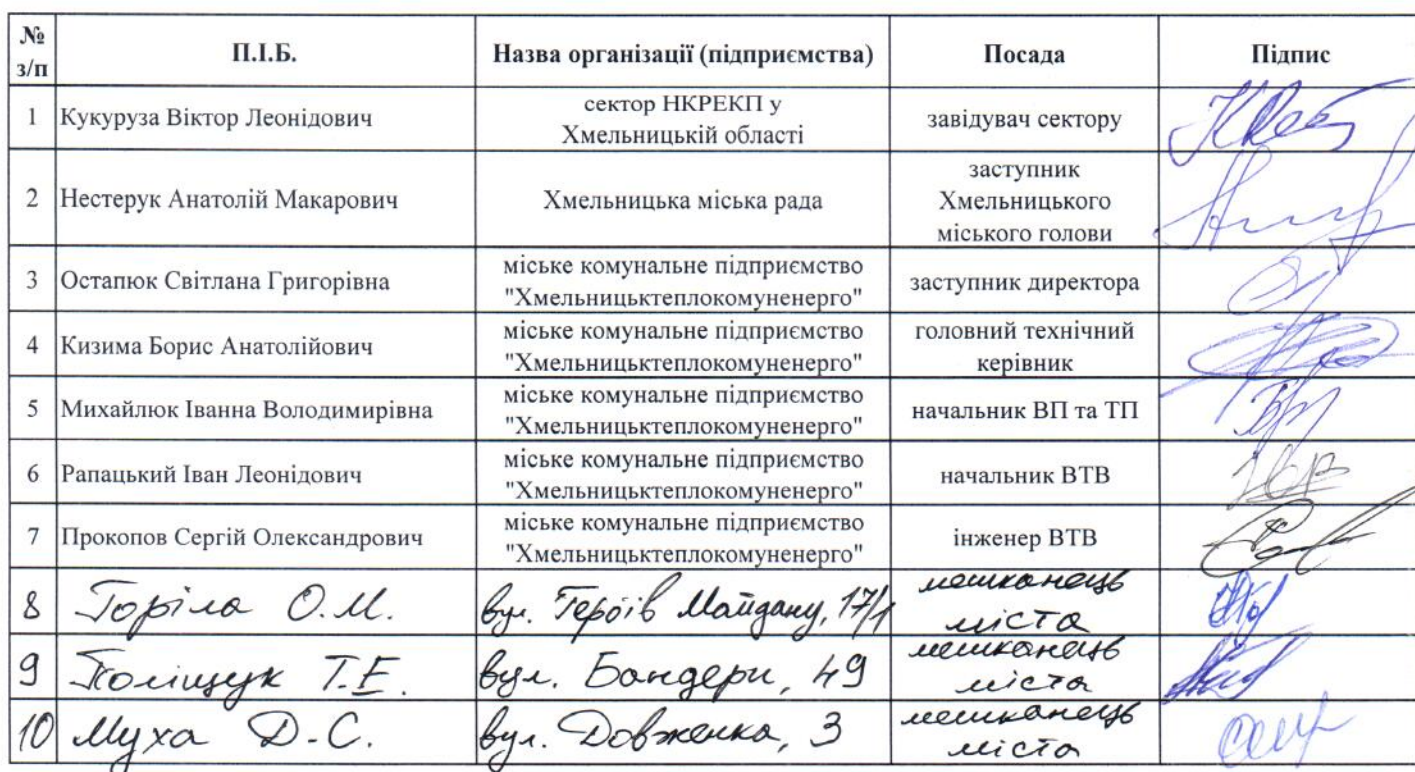 № з/п П.І.Б. Назва організації (підприємства) Посада Підпис
1 Кукуруза Віктор Леонідович сектор НКРЕКП у Хмельницькій області завідувач сектору
2 Нестерук Анатолій Макарович Хмельницька міська рада заступник Хмельницького міського голови
3 Остапюк Світлана Григорівна міське комунальне підприємство "Хмельницьктеплокомуненерго" заступник директора
4 Кизима Борис Анатолійович міське комунальне підприємство "Хмельницьктеплокомуненерго" головний технічний керівник
5 Михайлюк Іванна Володимирівна міське комунальне підприємство "Хмельницьктеплокомуненерго" начальник ВП та ТП
6 Рапацький Іван Леонідович міське комунальне підприємство "Хмельницьктеплокомуненерго" начальник ВТВ
7 Прокопов Сергій Олександрович міське комунальне підприємство "Хмельницьктеплокомуненерго" інженер ВТВ
8 Горіла О.М. вул. Героїв Майдану, 17/1 мешканець міста
9 Поліщук Т.Е. вул. Бандери, 49 мешканець міста
10 Муха Д.С. вул. Довженка, 3 мешканець міста